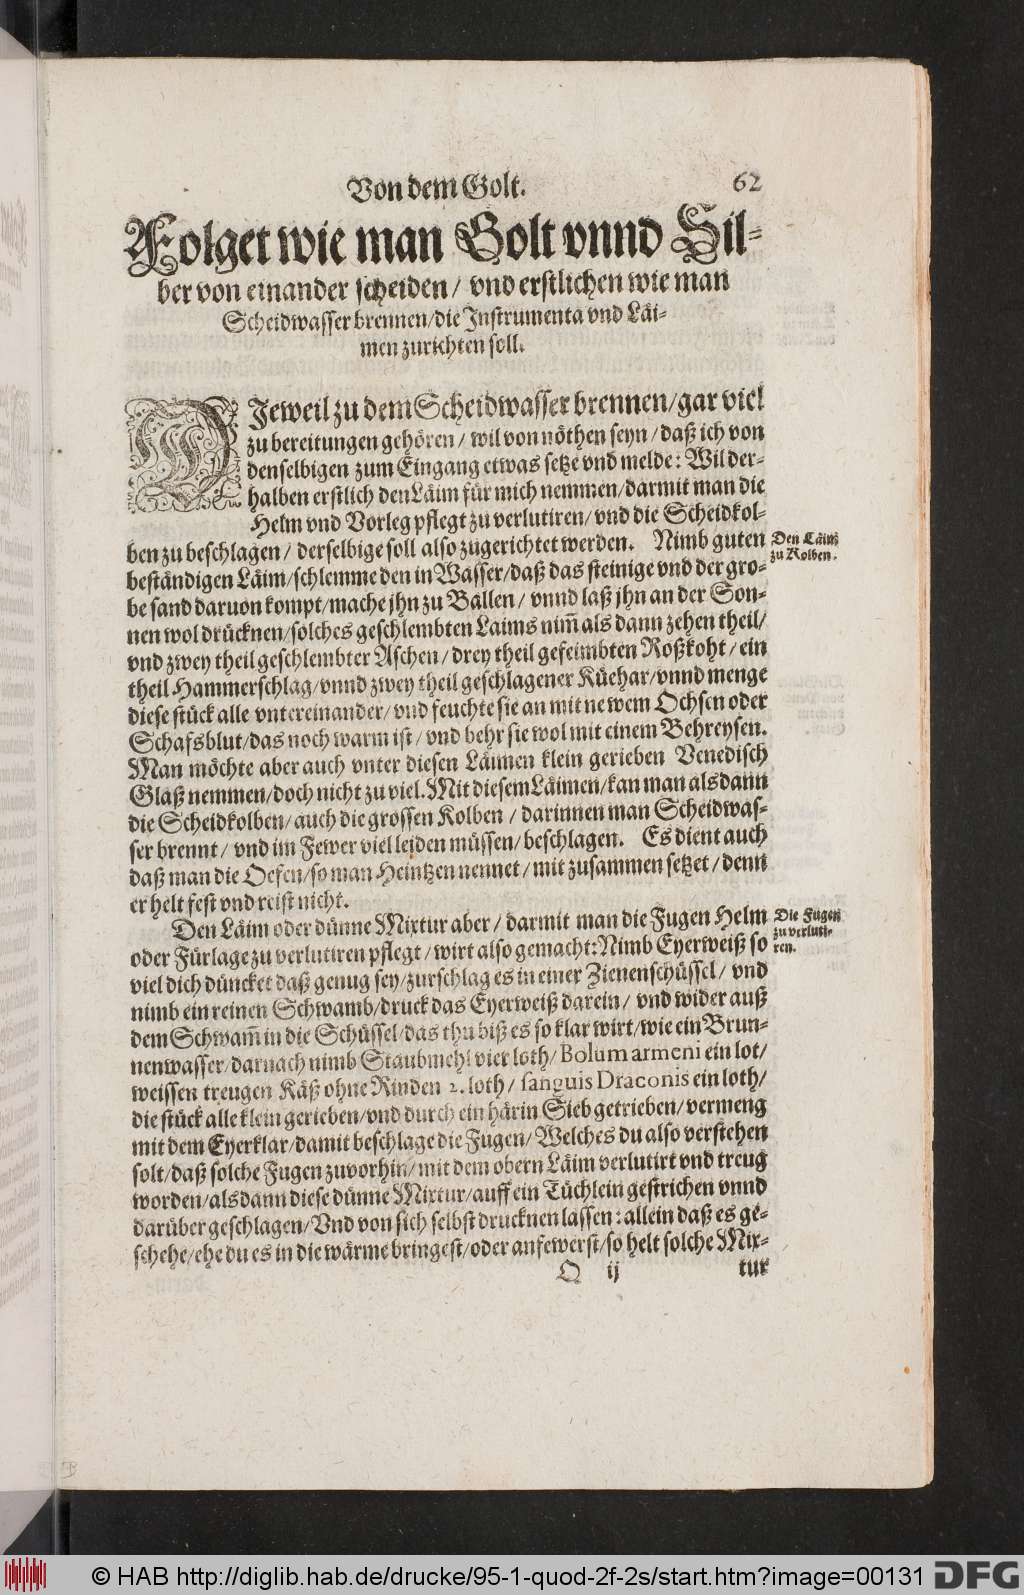 Von dem Golt. 62
Folget wie man Golt vnnd Sil=
ber von einander scheiden / vnd erstlichen wie man
Scheidwasser brennen/die Instrumenta vnd Läi-
men zurichten soll.
WIeweil zu dem Scheidwasser brennen/gar viel
zu bereitungen gehören / wil von nöthen seyn / daß ich von
denselbigen zum Eingang etwas setze vnd melde: Wil der-
halben erstlich den Läim für mich nemmen/darmit man die
Helm vnd Vorleg pflegt zu verlutiren/ vnd die Scheidkol-
ben zu beschlagen / derselbige soll also zugerichtet werden. Nimb guten
Den Läim
zu Kolben.
beständigen Läim/schlemme den in Wasser/daß das steinige vnd der gro-
be sand daruon kompt/mache jhn zu Ballen / vnnd laß jhn an der Son-
nen wol drücknen/solches geschlembten Laims nim̃ als dann zehen theil/
vnd zwey theil geschlembter Aschen / drey theil gefeimbten Roßkoht / ein
theil Hammerschlag/vnnd zwey theil geschlagener Küehar/vnnd menge
diese stück alle vntereinander/ vnd feuchte sie an mit newem Ochsen oder
Schafsblut/das noch warm ist / vnd behr sie wol mit einem Behreysen.
Man möchte aber auch vnter diesen Läimen klein gerieben Venedisch
Glaß nemmen/doch nicht zu viel. Mit diesem Läimen/kan man als dann
die Scheidkolben/auch die grossen Kolben / darinnen man Scheidwas-
ser brennt / vnd im Fewer viel leiden müssen/beschlagen. Es dient auch
daß man die Oefen/so man Heintzen nennet / mit zusammen setzet / denn
er helt fest vnd reist nicht.
Den Läim oder dünne Mixtur aber / darmit man die Fugen Helm
Die Fugen
zu verluti-
ren.
oder Fürlage zu verlutiren pflegt / wirt also gemacht: Nimb Eyerweiß so
viel dich düncket daß genug sey/zurschlag es in einer Zienenschüssel / vnd
nimb ein reinen Schwamb/druck das Eyerweiß darein / vnd wider auß
dem Schwam̃ in die Schüssel/das thu biß es so klar wirt/wie ein Brun-
nenwasser/darnach nimb Staubmehl vier loth/ Bolum armeni ein lot/
weissen treugen Käß ohne Rinden 2. loth / sanguis Draconis ein loth/
die stück alle klein gerieben/vnd durch ein härin Sieb getrieben/vermeng
mit dem Eyerklar/damit beschlage die Fugen/ Welches du also verstehen
solt/daß solche Fugen zuvorhin/mit dem obern Läim verlutirt vnd treug
worden/als dann diese dünne Mixtur/auff ein Tüchlein gestrichen vnnd
darüber geschlagen/Vnd von sich selbst drucknen lassen: allein daß es ge-
schehe/ehe du es in die wärme bringest/oder anfewerst/so helt solche Mix-
Q ij tur
© HAB http://diglib.hab.de/drucke/95-1-quod-2f-2s/start.htm?image=00131 DFG